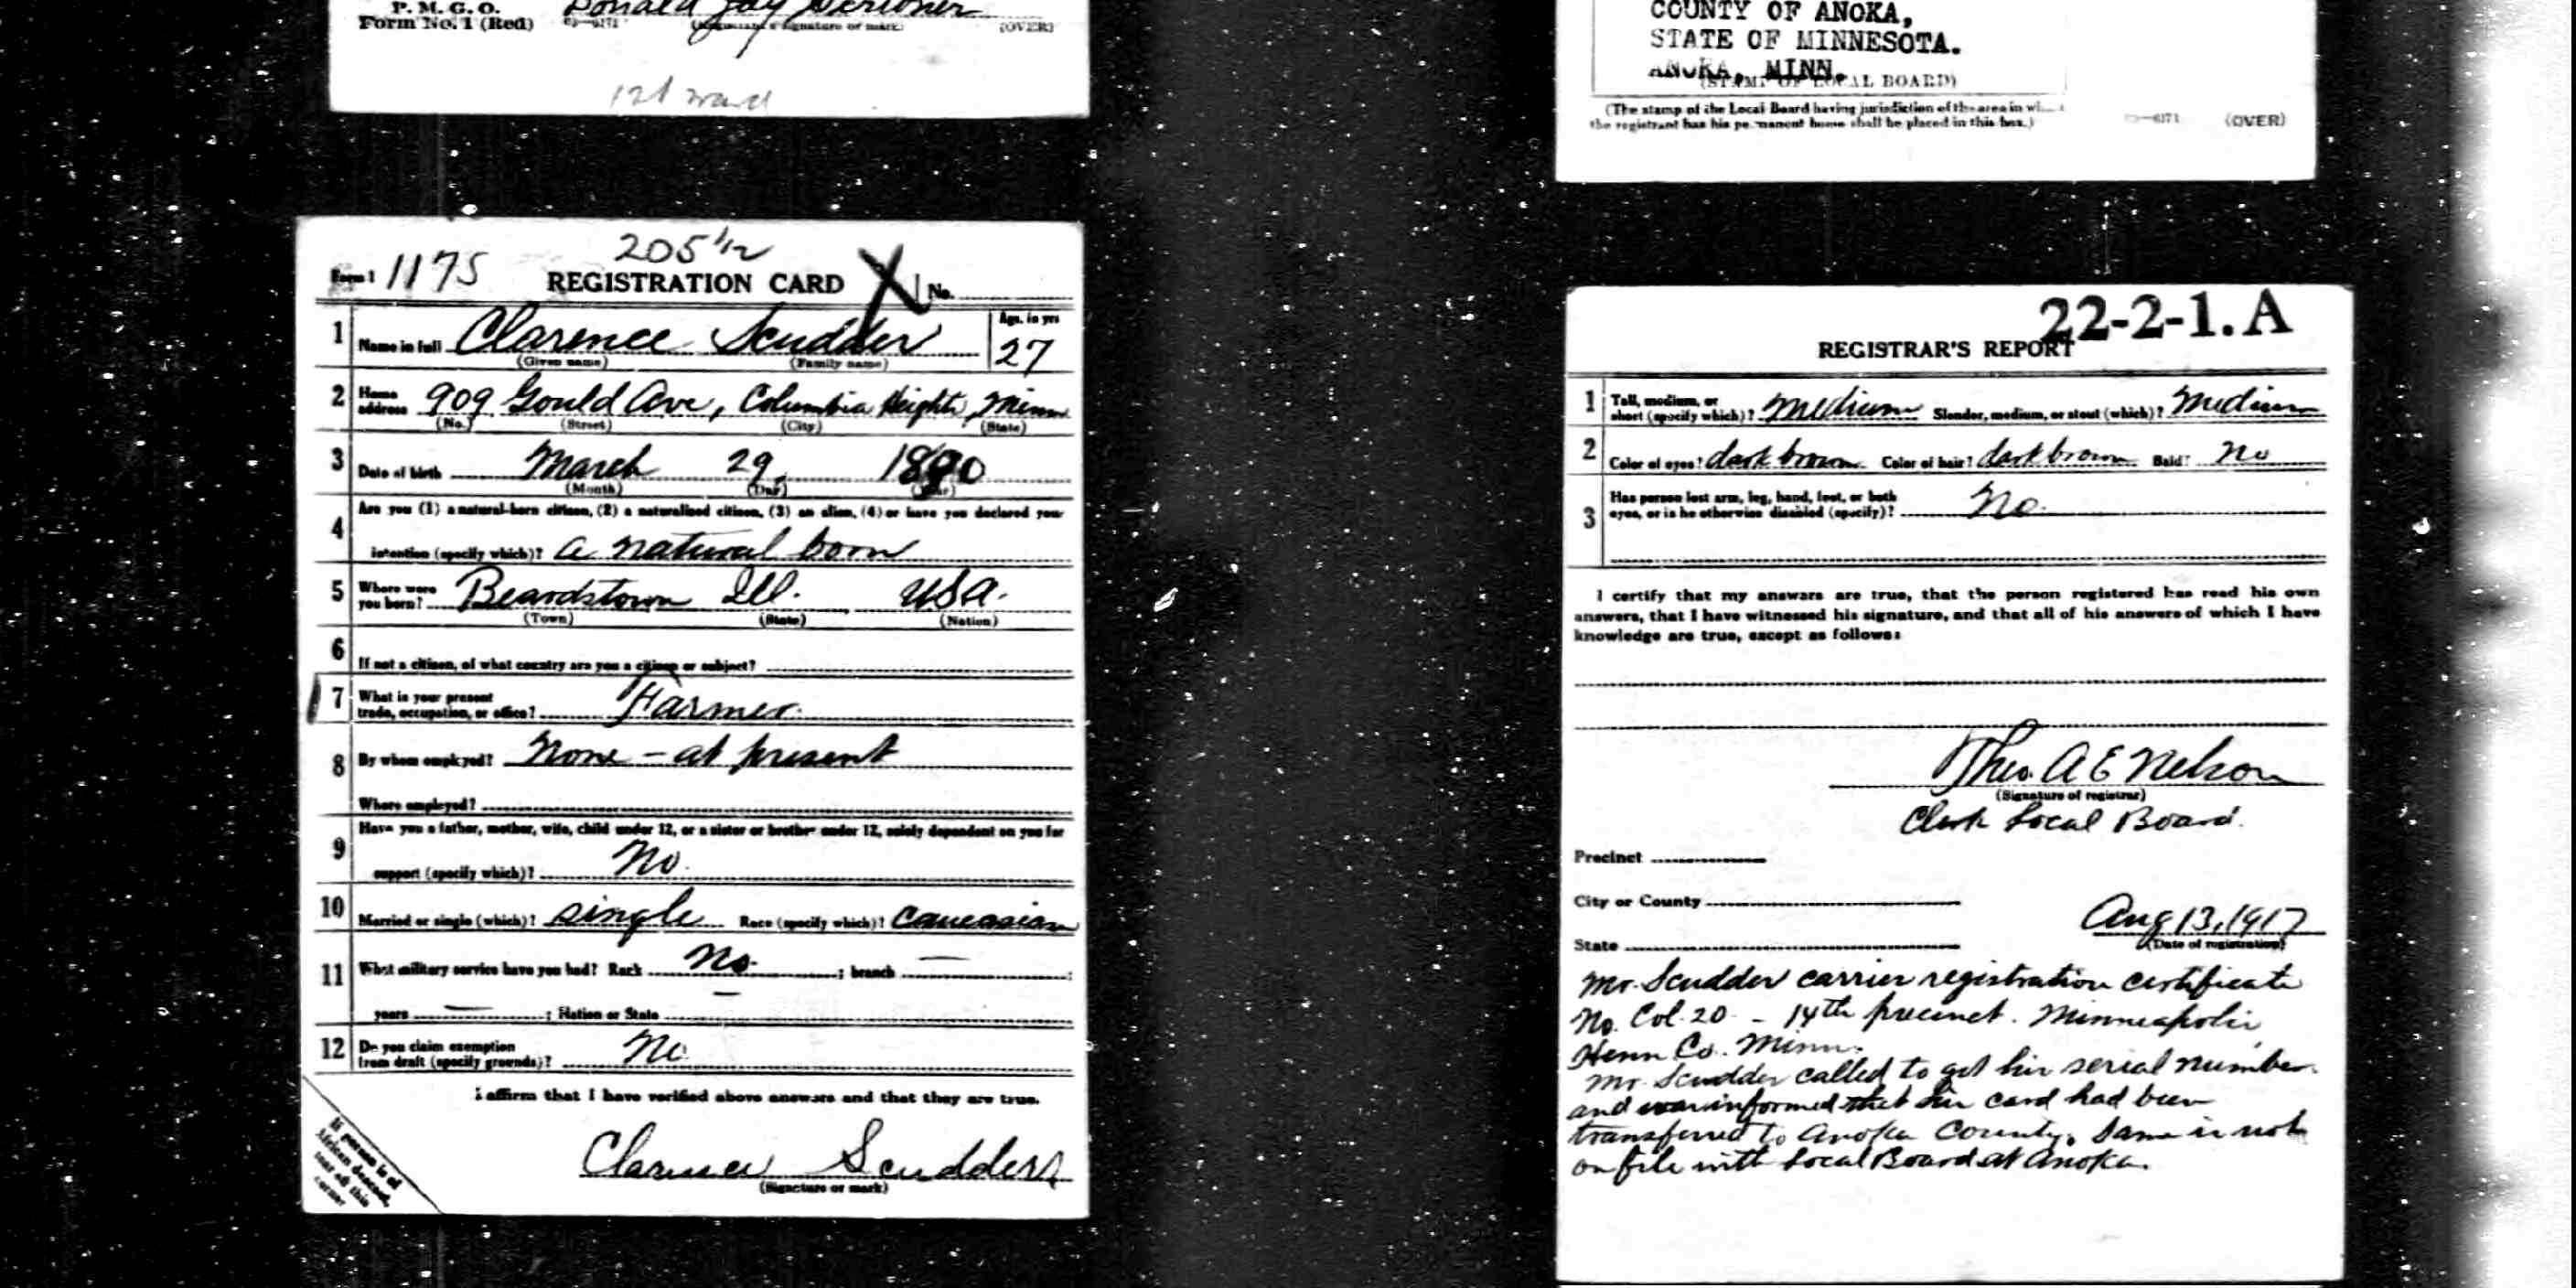 P. M. G. O.
Form No. 1 (Red)
Donald Jay Scribner
(OVER)
1st ward
COUNTY OF ANOKA,
STATE OF MINNESOTA.
ANOKA, MINN.
(STAMP OF LOCAL BOARD)
(The stamp of the Local Board having jurisdiction of the area in
the registrant has his permanent home shall be placed in this box.)
(OVER)
205 1/12
Form 1 1175 REGISTRATION CARD X No.
1 Name in full Clarence Scudder Age, in yrs 27
(Given name) (Family name)
2 Home address 909 Gould Ave, Columbia Heights, Minn
(No.) (Street) (City) (State)
3 Date of birth March 29, 1890
(Month) (Day) (Year)
4 Are you (1) a natural-born citizen, (2) a naturalized citizen, (3) an alien, (4) or have you declared your
intention (specify which)? a natural born
5 Where were you born? Beardstown Ill. USA.
(Town) (State) (Nation)
6 If not a citizen, of what country are you a citizen or subject?
7 What is your present trade, occupation, or office? Farmer.
8 By whom employed? None - at present
Where employed?
9 Have you a father, mother, wife, child under 12, or a sister or brother under 12, solely dependent on you for
support (specify which)? No.
10 Married or single (which)? single Race (specify which)? Caucasian
11 What military service have you had? Rank No. ; branch — ;
years — ; Nation or State —
12 Do you claim exemption from draft (specify grounds)? No
I affirm that I have verified above answers and that they are true.
Clarence Scudder
(Signature or mark)
If person is of
African descent,
tear off this
corner
22-2-1. A
REGISTRAR'S REPORT
1 Tall, medium, or short (specify which)? Medium Slender, medium, or stout (which)? Medium
2 Color of eyes? dark brown Color of hair? dark brown Bald? No
3 Has person lost arm, leg, hand, foot, or both
eyes, or is he otherwise disabled (specify)? No.
I certify that my answers are true, that the person registered has read his own
answers, that I have witnessed his signature, and that all of his answers of which I have
knowledge are true, except as follows:
Theo. A E Nelson
(Signature of registrar)
Clerk Local Board.
Precinct
City or County
State
Aug 13, 1917
(Date of registration)
Mr. Scudder carrier registration certificate
No. Col. 20 - 14th precinct. Minneapolis
Henn Co. Minn.
Mr. Scudder called to get his serial number
and was informed that his card had been
transferred to Anoka County. Same is not
on file with Local Board at Anoka.